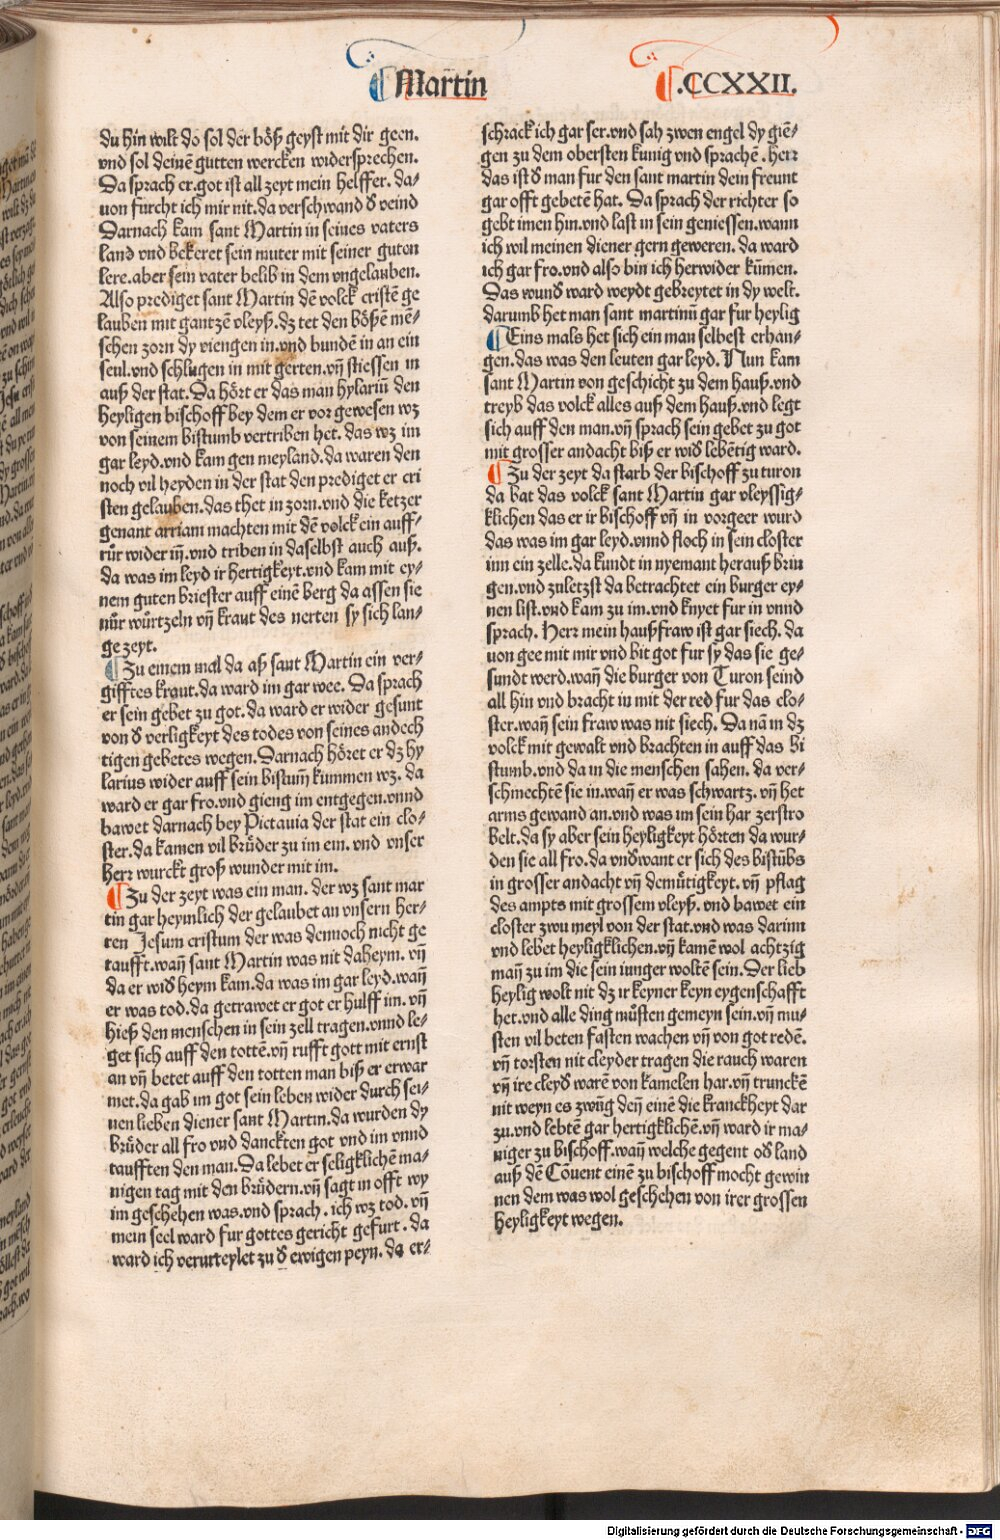 ¶ Martin
¶ .CCXXII.
du hin wilt do sol der böß geyst mit dir geen.
vnd sol deinē gutten wercken widersprechen.
Da sprach er.got ist all zeyt mein helffer. da⸗
uon furcht ich mir nit.da verschwand ď veind
Darnach kam sant Martin in seines vaters
land vnd bekeret sein muter mit seiner guten
lere.aber sein vater belib in dem vngelauben.
Also prediget sant Martin dē volck cristē ge
lauben mit gantzē vleyß.dz tet den bößē mē⸗
schen zorn dy viengen in.vnd bundē in an ein
seul.vnd schlugen in mit gerten.vn̄ stiessen in
auß der stat. Da hört er das man hylariū den
heyligen bischoff bey dem er vor gewesen wz
von seinem bistumb vertriben het. das wz im
gar leyd.vnd kam gen meyland.da waren den
noch vil heyden in der stat den prediget er cri
sten gelauben.das thet in zorn.vnd die ketzer
genant arriam machten mit dē volck ein auff⸗
růr wider in̄.vnd triben in daselbst auch auß.
da was im leyd ir hertigkeyt.vnd kam mit ey⸗
nem guten briester auff einē berg da assen sie
nůr wůrtzeln vn̄ kraut des nerten sy sich lan⸗
ge zeyt.
¶ Zu einem mal da aß sant Martin ein ver⸗
gifftes kraut.da ward im gar wee. Da sprach
er sein gebet zu got. da ward er wider gesunt
von ď verligkeyt des todes von seines andech
tigen gebetes wegen. Darnach höret er dz hy
larius wider auff sein bistum̄ kummen wz. da
ward er gar fro.vnd gieng im entgegen.vnnd
bawet darnach bey Pictauia der stat ein clo⸗
ster.da kamen vil brůder zu im ein. vnd vnser
herr wurckt groß wunder mit im.
¶ Zu der zeyt was ein man. der wz sant mar
tin gar heymlich der gelaubet an vnsern her⸗
ren Jesum cristum der was dennoch nicht ge
taufft.wan̄ sant Martin was nit daheym. vn̄
da er wiď heym kam.da was im gar leyd.wan̄
er was tod.da getrawet er got er hulff im. vn̄
hieß den menschen in sein zell tragen.vnnd le⸗
get sich auff den tottē.vn̄ rufft gott mit ernst
an vn̄ betet auff den totten man biß er erwar
met.da gab im got sein leben wider durch sei⸗
nen lieben diener sant Martin.da wurden dy
brůder all fro vnd danckten got vnd im vnnd
taufften den man. Da lebet er seligklichē ma⸗
nigen tag mit den brůdern.vn̄ sagt in offt wy
im geschehen was.vnd sprach. ich wz tod. vn̄
mein seel ward fur gottes gericht gefurt. da
ward ich verurteylet zu ď ewigen peyn. da er⸗
schrack ich gar ser.vnd sah zwen engel dy giē⸗
gen zu dem obersten kunig vnd sprachē . herr
das ist ď man fur den sant martin dein freunt
gar offt gebetē hat. Da sprach der richter so
gebt imen hin.vnd last in sein geniessen.wann
ich wil meinen diener gern geweren. da ward
ich gar fro.vnd also bin ich herwider kūmen.
Das wund ward weydt gebreytet in dy welt.
darumb het man sant martinū gar fur heylig
¶ Eins mals het sich ein man selbest erhan⸗
gen.das was den leuten gar leyd. Nun kam
sant Martin von geschicht zu dem hauß.vnd
treyb das volck alles auß dem hauß.vnd legt
sich auff den man.vn̄ sprach sein gebet zu got
mit grosser andacht biß er wiď lebētig ward.
¶ Zu der zeyt da starb der bischoff zu turon
da bat das volck sant Martin gar vleyssig⸗
klichen das er ir bischoff vn̄ in vorgeer wurd
das was im gar leyd.vnnd floch in sein closter
inn ein zelle.da kundt in nyemant herauß brin
gen.vnd zuletzst da betrachtet ein burger ey⸗
nen list.vnd kam zu im.vnd knyet fur in vnnd
sprach. Herr mein haußfraw ist gar siech. da
uon gee mit mir vnd bit got fur sy das sie ge⸗
sundt werd.wan̄ die burger von Turon seind
all hin vnd bracht in mit der red fur das clo⸗
ster.wan̄ sein fraw was nit siech. Da nā in dz
volck mit gewalt vnd brachten in auff das bi
stumb.vnd da in die menschen sahen. da ver⸗
schmechtē sie in.wan̄ er was schwartz. vn̄ het
arms gewand an.vnd was im sein har zerstro
belt.da sy aber sein heyligkeyt hörten da wur⸗
den sie all fro.da vnďwant er sich des bistūbs
in grosser andacht vn̄ demůtigkeyt. vn̄ pflag
des ampts mit grossem vleyß. vnd bawet ein
closter zwu meyl von der stat.vnd was darinn
vnd lebet heyligklichen.vn̄ kamē wol achtzig
man̄ zu im die sein iunger woltē sein. Der lieb
heylig wolt nit dz ir keyner keyn eygenschafft
het.vnd alle ding můsten gemeyn sein.vn̄ mu⸗
sten vil beten fasten wachen vn̄ von got redē.
vn̄ torsten nit cleyder tragen die rauch waren
vn̄ ire cleyď warē von kamelen har.vn̄ trunckē
nit weyn es zwūg den̄ einē die kranckheyt dar
zu.vnd lebtē gar hertigklichē.vn̄ ward ir ma⸗
niger zu bischoff.wan̄ welche gegent oď land
auß dē Cōuent einē zu bischoff mocht gewin
nen dem was wol geschehen von irer grossen
heyligkeyt wegen.
Digitalisierung gefördert durch die Deutsche Forschungsgemeinschaft - DFG